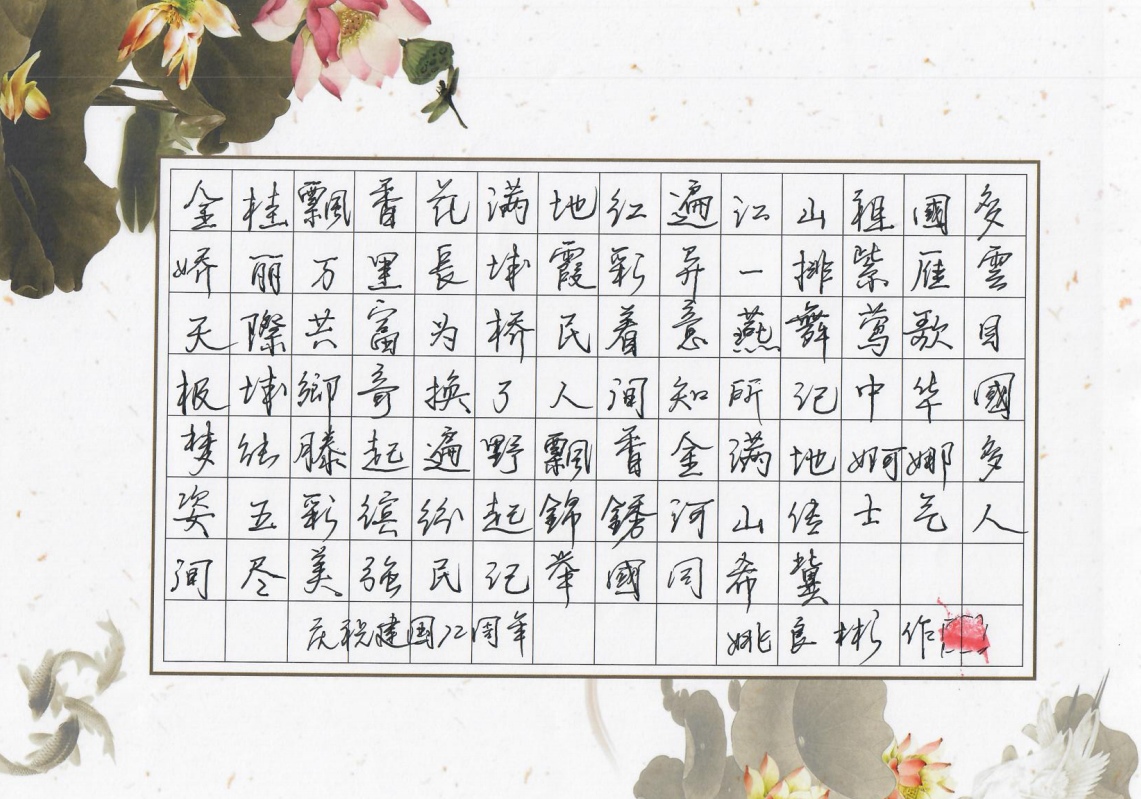 金桂飄香花满地红遍江山祖國多
娇丽万里長城霞彩昇一排紫雁雲
天際共富为桥民着意燕舞莺歌目
极城鄉奇换了人间知所记中华國
梦能腾起遍野飄香金满地婀娜多
姿五彩缤纷起錦銹河山传士气人
间尽美强民记举國同希冀
庆祝建国72周年 姚良彬作